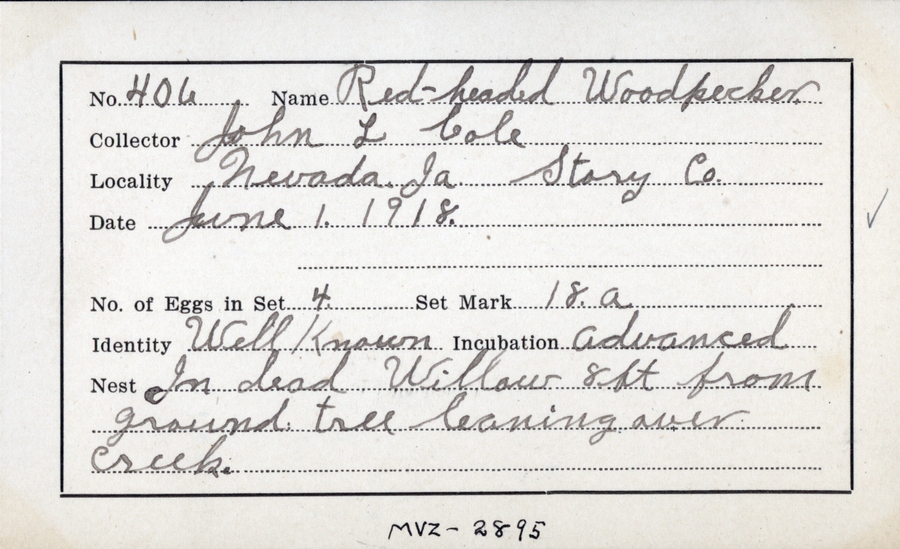 No. 406 Name Red-headed Woodpecker.
Collector John L Cole
Locality Nevada. Ia Story Co.
Date June 1. 1918.
No. of Eggs in Set 4. Set Mark 18. a
Identity Well Known Incubation advanced
Nest In dead Willow 8ft from
ground. tree leaning over
creek.
MVZ- 2895